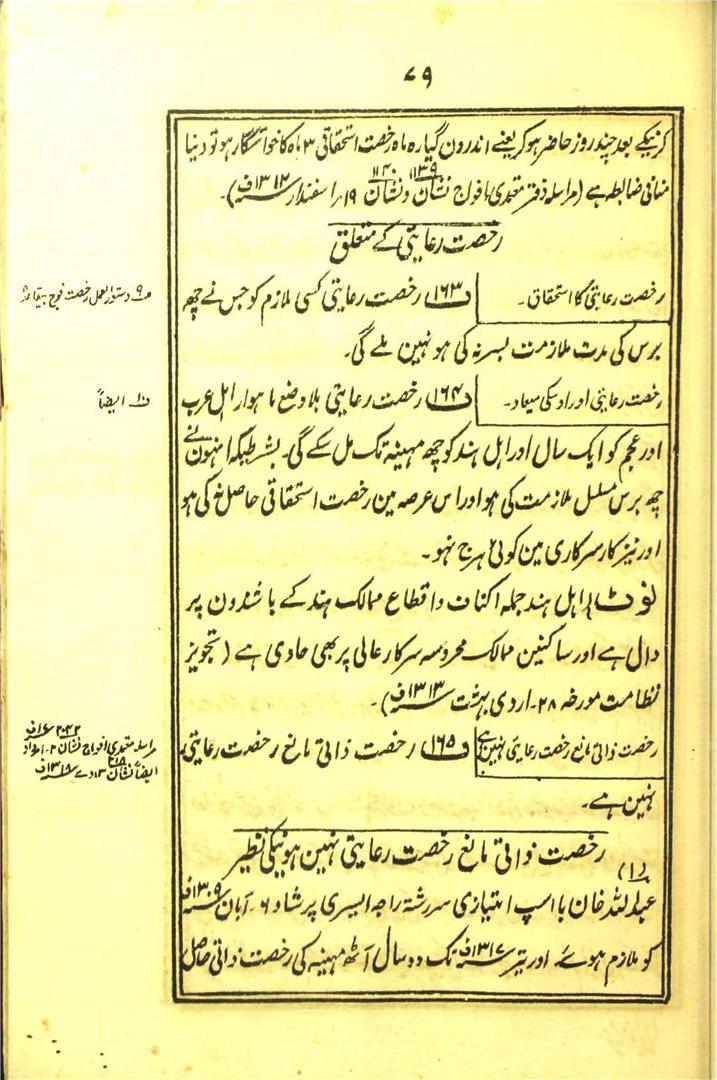 ۷۹
کرنیکے بعد چند روز حاضر ہو کر یعنے اندرون گیارہ ماہ رخصت استحقاقی ۳ ماہ کا خواستگار ہو تو دنیا
منافی ضابطہ ہے (مراسلہ دفتر معتمدی افواج نشان ۱۱۳۹ و نشان ۱۱۴۰ ۱۹؍ اسفندار ۱۳۱۲ف)۔
رخصت رعایتی کے متعلق
رخصت رعایتی کا استحقاق۔
ف۱۶۳ رخصت رعایتی کسی ملازم کو جس نے چھ
برس کی مدت ملازمت بسر نہ کی ہو نہین ملے گی۔
رخصت رعایتی اور اوسکی میعاد۔
ف۱۶۴ رخصت رعایتی بلا وضع ماہوار اہل عرب
اور عجم کو ایک سال اور اہل ہند کو چھ مہینہ تک مل سکے گی۔ بشرطیکہ انہون نے
چھ برس مسلسل ملازمت کی ہو اور اس عرصہ مین رخصت استحقاقی حاصل نہ کی ہو
اور نیز کار سرکاری مین کوئی ہرج نہو۔
نوٹ اہل ہند جملہ اکناف و اقطاع ممالک ہند کے باشندون پر
دال ہے اور ساکنین ممالک محروسہ سرکار عالی پر بھی حاوی ہے (تجویز
نظامت مورخہ ۲۸۔ اردی بہشت ۱۳۱۳ف)۔
رخصت ذاتی مانع رخصت رعایتی نہین ہے
ف۱۶۵ رخصت ذاتی مانع رخصت رعایتی
نہین ہے۔
رخصت ذاتی مانع رخصت رعایتی نہین ہونیکی نظیر
(۱)
عبداللہ خان با اسپ امتیازی سررشتہ راجہ ایسری پرشاد ۶۔ آبان ۱۳۰۹ف
کو ملازم ہوئے اور تیر ۱۳۱۷ف تک دو سال آٹھ مہینہ کی رخصت ذاتی حاصل
ف۹ دستور العمل رخصت فوج بیقاعدہ
ف۱۰ ایضاً
مراسلہ معتمدی افواج نشان
ایضاً نشان ۱۳ دے ۱۳۱۸ف